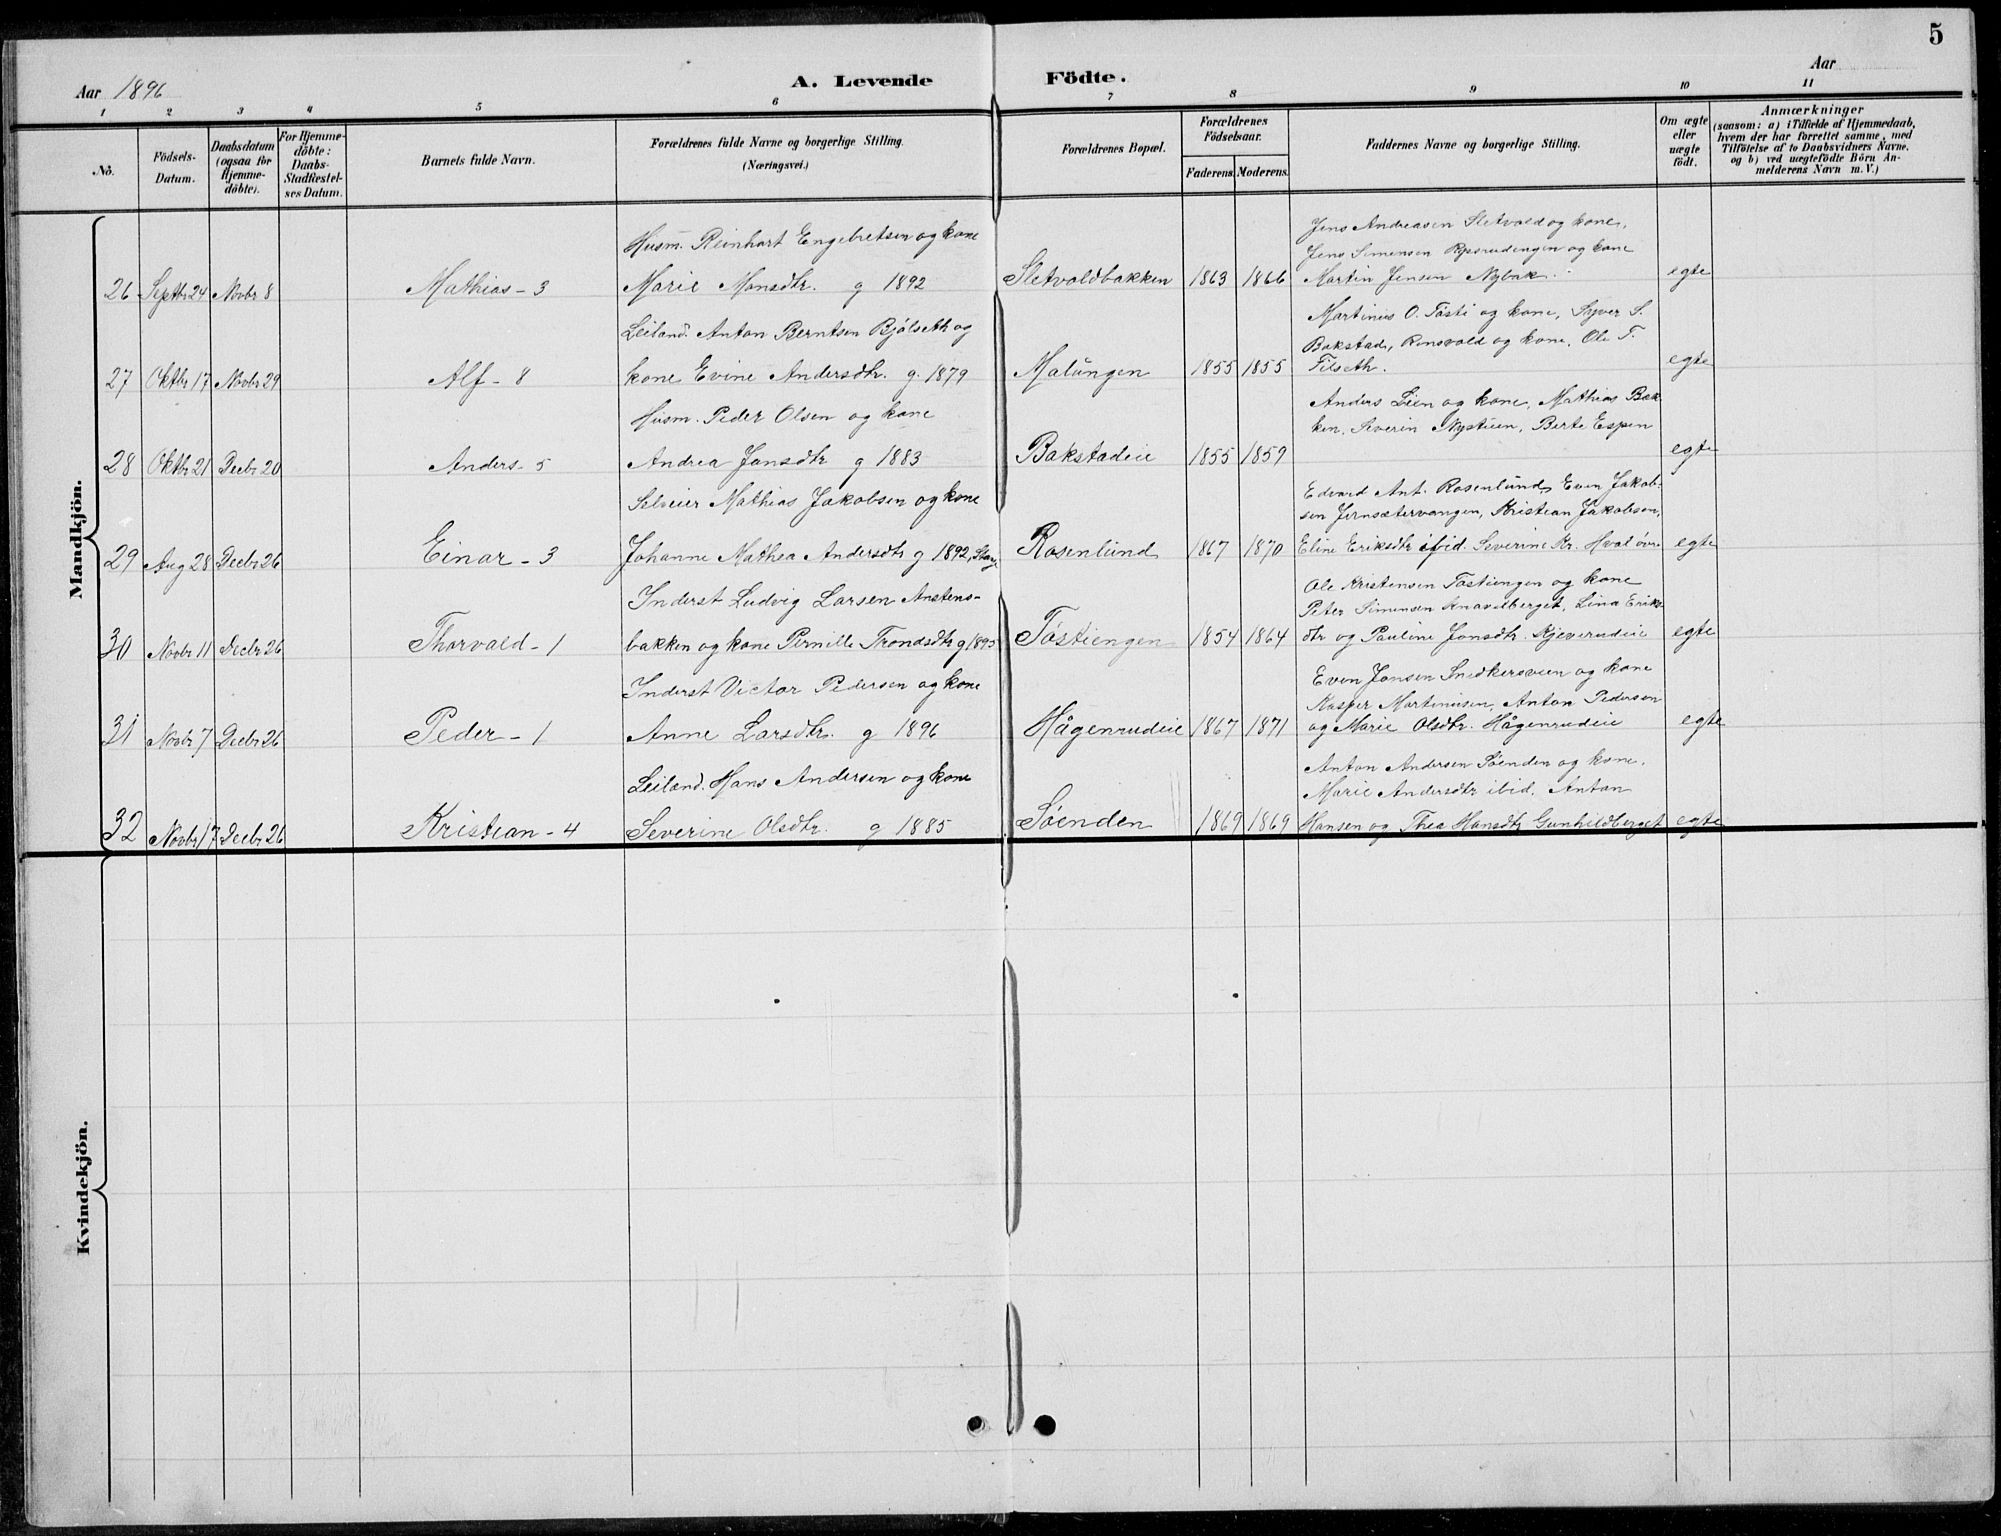 5
Aar 1896
A. Levende Födte.
Aar
1 2 3 4 5 6 7 8 9 10 11
No.
Födsels-Datum.
Daabsdatum (ogsaa for Hjemme-döbte).
For Hjemme-döbte: Daabs-Stadfæstel-ses Datum.
Barnets fulde Navn.
Forældrenes fulde Navne og borgerlige Stilling.
(Næringsvei.)
Forældrenes Bopæl.
Forældrenes Födselsaar.
Faderens. Moderens.
Faddernes Navne og borgerlige Stilling.
Om ægte eller uægte födt.
Anmærkninger
(saasom: a) i Tilfælde af Hjemmedaab, hvem der har forrettet samme, med Tilföielse af to Daabsvidners Navne. og b) ved uægtefödte Börn An-melderens Navn m. V.)
Mandkjön.
Husm. Reinhart Engebretsen og kone
Jens Andreasen Sletvold og kone,
Jens Simensen Rpsrudengen og kone
26 Septbr 24 Novbr 8 Mathias - 3 Marie Monsdtr. g 1892 Sletvoldbakken 1863 1866 Martin Jensen Nybak. egte
Leiland. Anton Berntsen Bjölseth og
Martinus O. Tosti og kone, Syver S.
Bakstad, Rensvold og kone, Ole T.
27 Oktbr 17 Novbr 29 Alf - 8 kone Evine Andersdtr. g. 1879 Malungen 1855 1855 Filseth. egte
Husm. Peder Olsen og kone
Anders Lien og kone, Mathias Bak-
ken, Severin Nystuen, Berte Espen
28 Oktbr 21 Decbr 20 Anders - 5 Andrea Jonsdtr g 1883 Bakstadeie 1855 1859 egte
Selveier Mathias Jakobsen og kone
Edvard Ant. Rosenlund, Even Jakob-
sen Jernsætervangen, Kristian Jakobsen,
29 Aug 28 Decbr 26 Einar - 3 Johanne Mathea Andersdtr g 1892, Stange Rosenlund 1867 1870 Eline Eriksdtr ibid. Severine Kr. Hval övre egte
Inderst Ludvig Larsen Anstens-
Ole Kristensen Tostiengen og kone
Peter Simensen Knavelberget, Lina Eriks-
30 Novbr 11 Decbr 26 Thorvald - 1 bakken og kone Pernille Trondsdtr g 1895 Tostiengen 1854 1864 dtr og Pauline Jonsdtr. Kjeverudeie egte
Inderst Victor Pedersen og kone
Even Jonsen Snedkersveen og kone
Kasper Martinusen, Anton Pedersen
31 Novbr 7 Decbr 26 Peder - 1 Anne Larsdtr. g 1896 Hågenrudeie 1867 1871 og Marie Olsdtr. Hågenrudeie egte
Leiland. Hans Andersen og kone
Anton Andersen Söenden og kone,
Marie Andersdtr ibid, Anton
32 Novbr 17 Decbr 26 Kristian - 4 Severine Olsdtr. g 1885 Söenden 1869 1869 Hansen og Thea Hansdtr Gunhildberget egte
Kvindekjön.